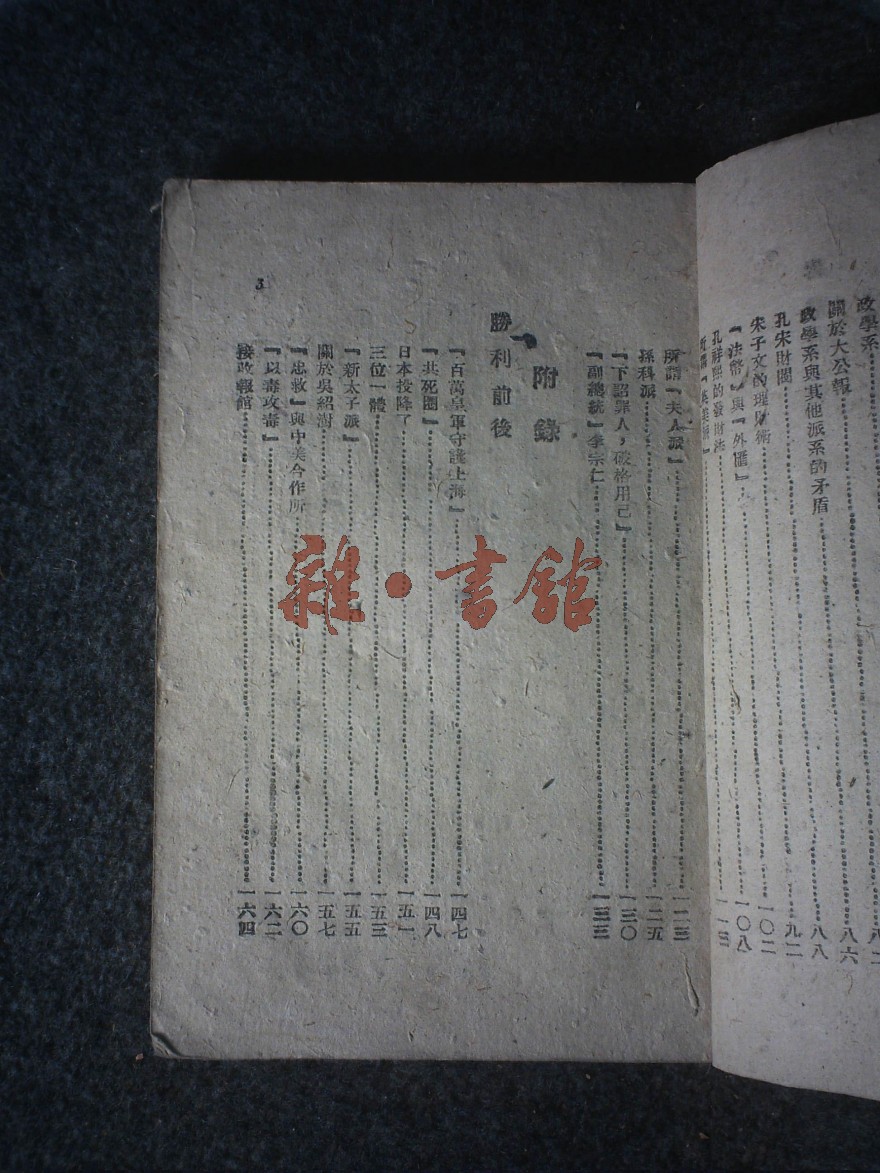 政學系
關於大公報……八六
政學系與其他派系的矛盾……八八
孔宋財閥……九二
宋子文的理財術……一〇二
『法幣』與『外匯』……一〇八
孔祥熙的發財法
所謂『夫人派』……一二三
孫科派……一二五
『下詔罪人，破格用己』……一三〇
『副總統』李宗仁……一三三
附錄
勝利前後
『一百萬皇軍守護上海』……一四七
『共死團』……一四八
日本投降了……一五一
三位一體……一五三
『新太子派』……一五五
關於吳紹澍……一五七
『忠救』與中美合作所……一六〇
『以毒攻毒』……一六二
接收報館……一六四
3
雜·書館